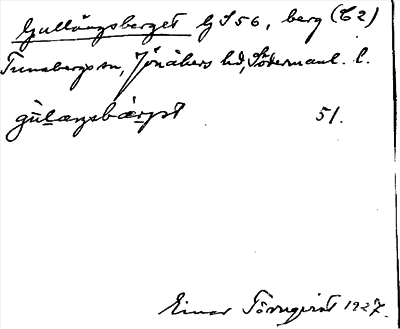 Gullängsberget GS56, berg (C2)
Tunabergs sn, Jönåkers hd, Södermanl. l.
gulæŋsbærjət 51.
Einar Törnqvist 1927.